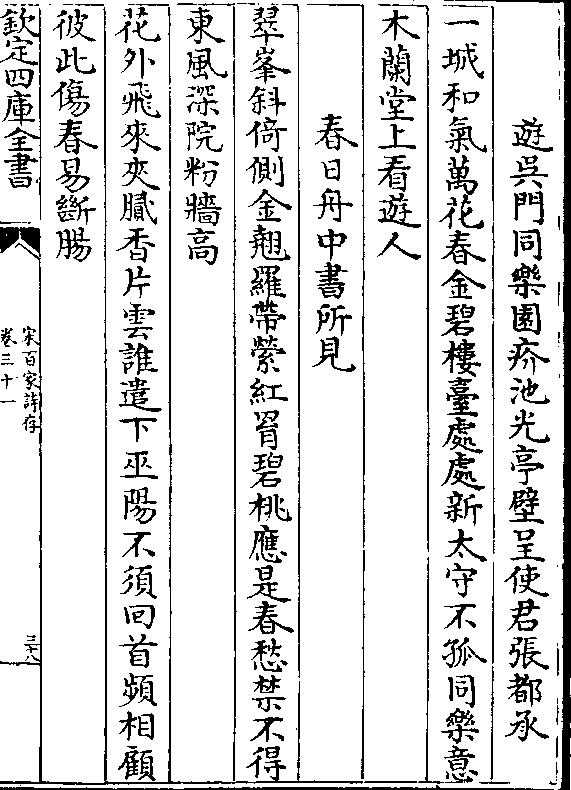 遊吳門同樂園疥池光亭壁呈使君張都承
一城和氣萬花春金碧樓臺處處新太守不孤同樂意
木蘭堂上看遊人
春日舟中書所見
翠峯斜倚側金翹羅帶縈紅罥碧桃應是春愁禁不得
東風深院粉牆高
花外飛來夾膩香片雲誰遣下巫陽不須回首頻相顧
彼此傷春易斷腸
欽定四庫全書
宋百家詩存
卷三十一
三十八